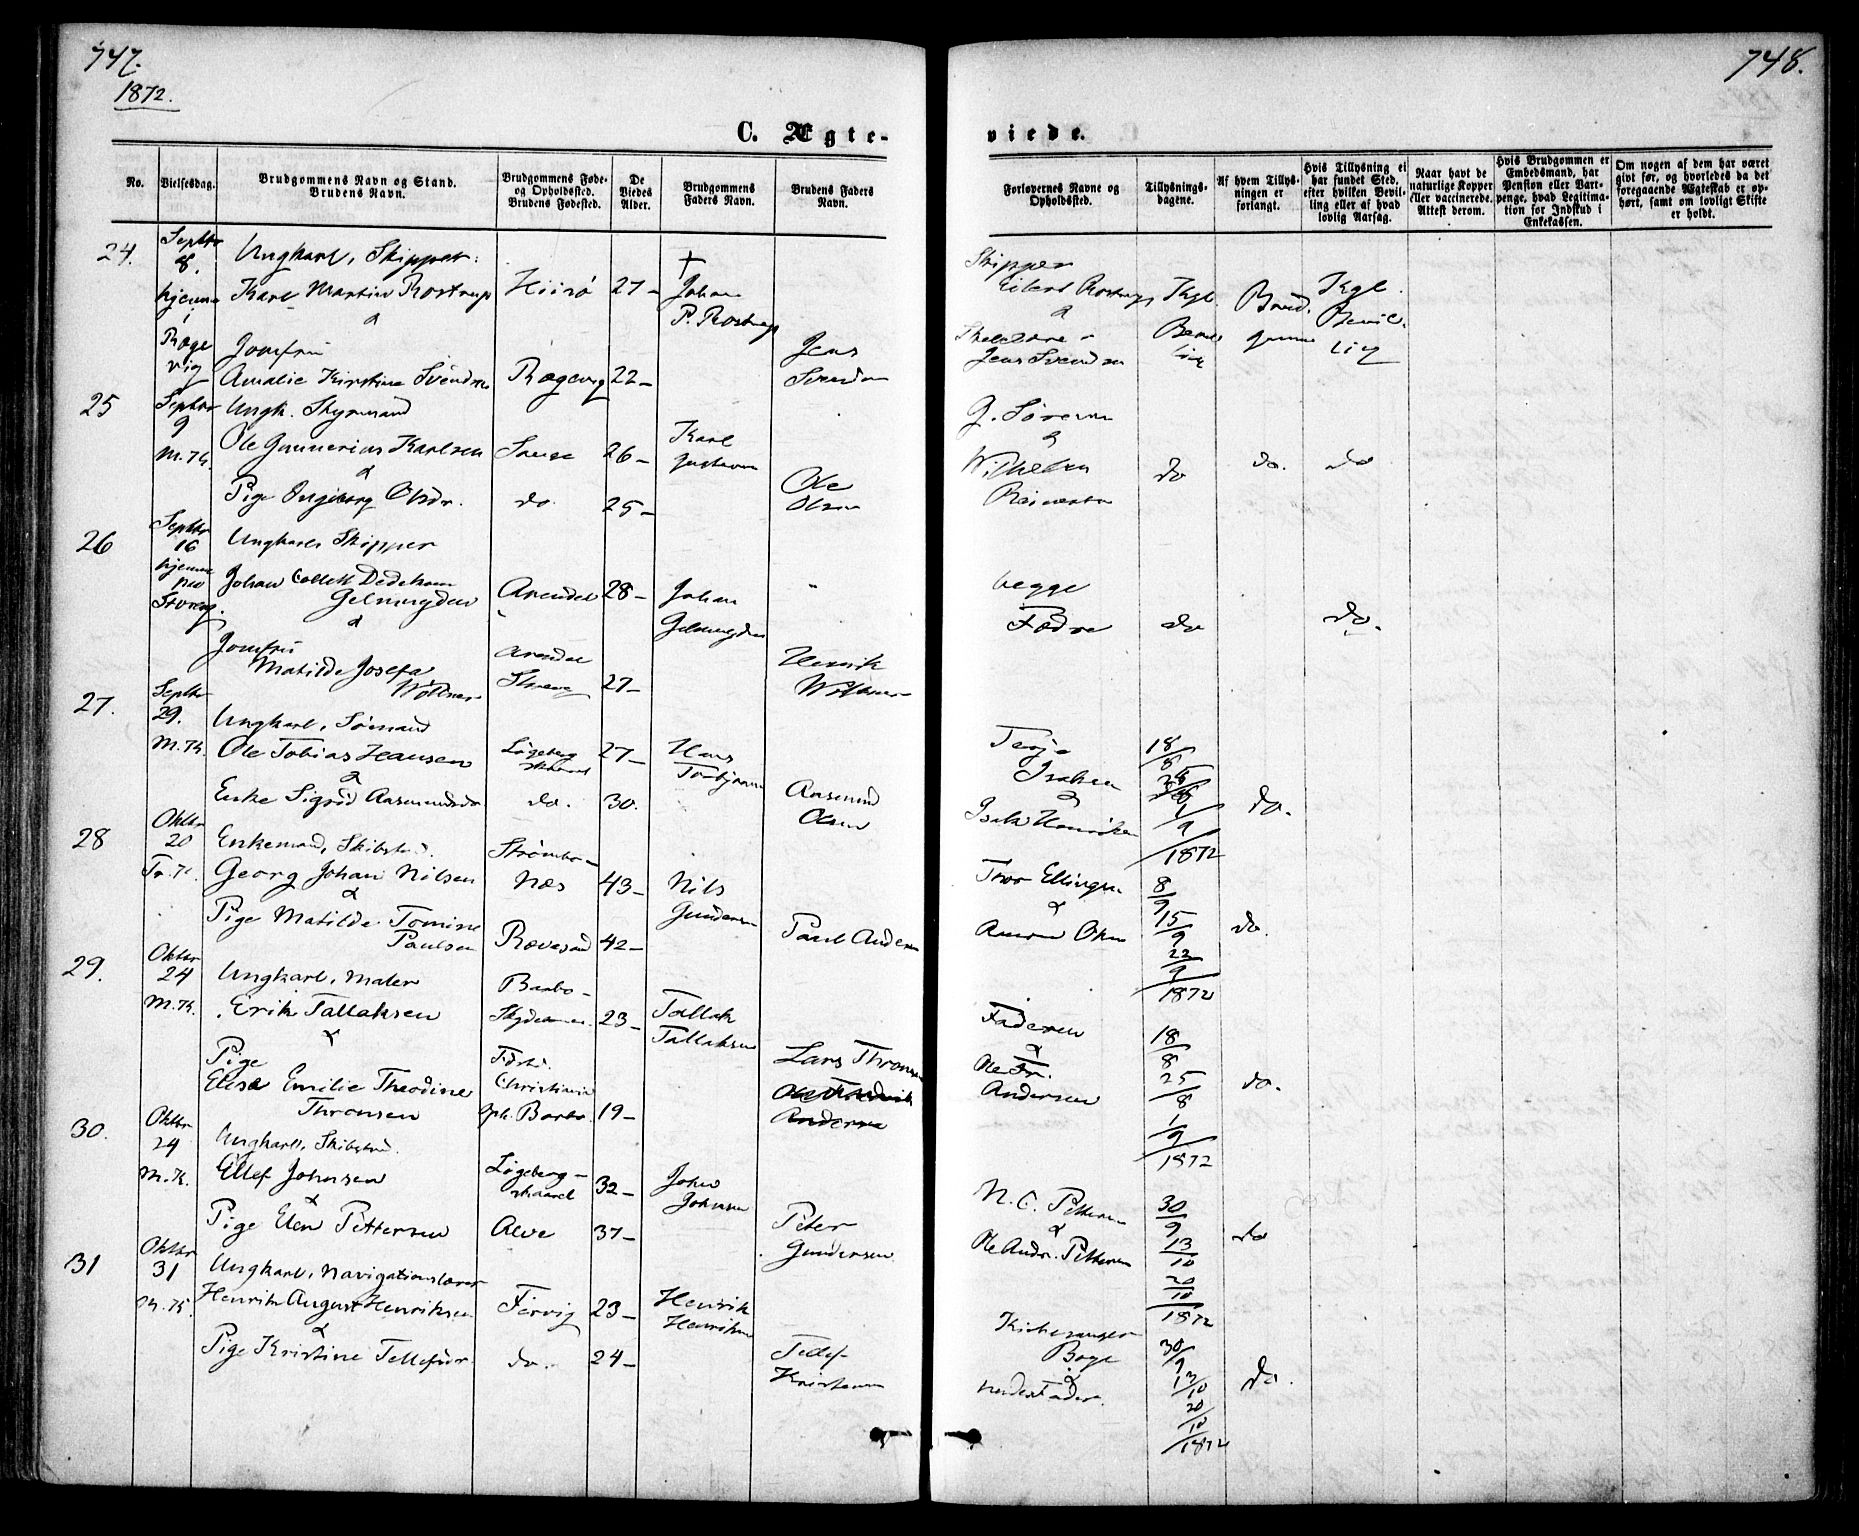 747.
1872.
C. Ægte-
No.
Vielsesdag.
Brudgommens Navn og Stand.
Brudens Navn.
Brudgommens Føde-
og Opholdssted.
Brudens Fødested.
De
Viedes
Alder.
Brudgommens
Faders Navn.
Brudens Faders
Navn.
24.
Septbr
8.
hjemme
i
Ungkarl, Skipper
Karl Martin Rostrup
Hiisø
27 -
†
Johan
P. Rostrup
&
Jomfru
Amalie Kirstine Svendsen
22 -
Jens
Svendsen
25
Septbr
9
M. K.
Ungk. Styrmand
Ole Gunnerius Karlsen
26 -
Karl
&
Pige Ingeborg Olsdr.
do.
25 -
Ole
Olsen
26
Septbr
16
hjemme
Ungkarl Skipper
Johan Collett Dedekam
Arendal
28 -
Johan
&
Jomfru
Matilde Josefa
Arendal
27 -
Henrik
27.
Septbr
29.
M. K.
Ungkarl, Sømand
Ole Tobias Hansen
Løgeberg
27 -
Hans
Torbjørnsen
&
Enke Sigrid Aasmundsdr
do.
30.
Aasmund
Olsen
28
Oktbr
20
Tr. K.
Enkemand, Skibstd.
Georg Johan Nilsen
Strømbo-
Næs
43 -
Nils
Gundersen
&
Pige Matilde Tomine
Paulsen
Rævesand
42 -
Paul Andersen
29.
Oktbr
24
M. K.
Ungkarl, Maler
Erik Tallaksen
Barbo -
23 -
Tallak
Tallaksen
&
Pige
Elise Emilie Theodine
Thronsen
Fødst.
Christiania
oph. Barbo
19 -
Lars Thronsen
Ole Fredrik
Andersen
30.
Oktbr
24
M. K.
Ungkarl, Skibstmd.
Ellef Johnsen
Løgeberg -
skaaret
32 -
John
Johnsen
&
Pige Elen Pettersen
Alve
37 -
Peter
Gundersen
31
Oktbr
31
M. K.
Ungkarl, Navigationslærer
Henrik August Henriksen
Færvig
23 -
Henrik
Henriksen
&
Pige Kristine Tellefsdr.
do.
24 -
Tellef
Kristensen
748.
viede.
Forlovernes Navne og
Opholdssted.
Tillysnings-
dagene.
Af hvem Tillys-
ningen er
forlangt.
Hvis Tillysning ei
har fundet Sted,
efter hvilken Bevil-
ling eller af hvad
lovlig Aarsag.
Naar havt de
naturlige Kopper
eller vaccinerede.
Attest derom.
Hvis Brudgommen er
Embedsmand, har
Pension eller Vart-
penge, hvad Legitima-
tion for Indskud i
Enkekassen.
Om nogen af dem har været
givt før, og hvorledes da det
foregaaende Ægteskab er op-
hørt, samt om lovligt Skifte
er holdt.
Skipper
Eilert Rostrup
&
Jens Svendsen
Kgl.
Bevil-
ling
Brud-
gommen
Kgl.
Bevil-
ling
&
do
do.
do
begge
Fædre
do
do.
Terje
Isaksen
&
Isak Henriksen
18/8
1/9
1872
do.
Thor Ellingsen
&
8/9
15/9
22/9
1872
do.
Faderen
&
Ole Fr.
Andersen
18/8
25/8
1/9
1872
do.
N. C. Pettersen
&
Ole Andr. Pettersen
30/9
13/10
20/10
1872
do
Kirkesanger
Boye
&
30/9
13/10
20/10
1872
do.